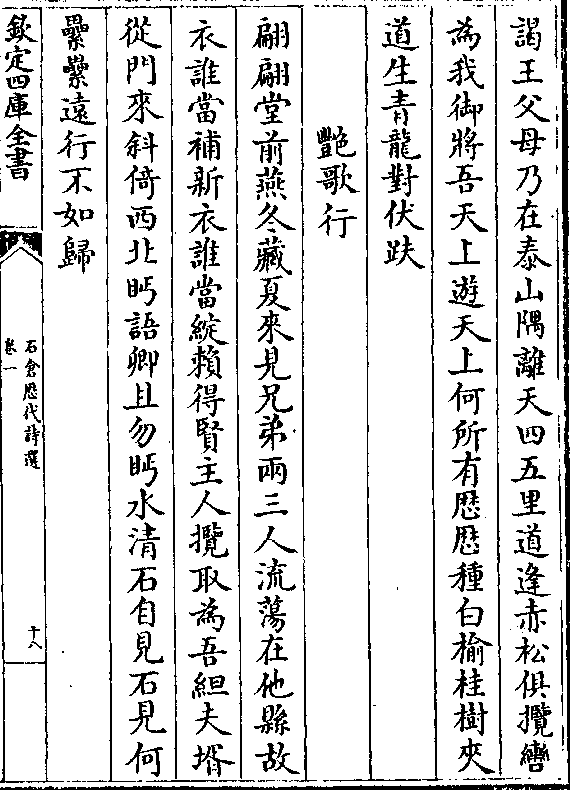 謁王父母乃在泰山隅離天四五里道逢赤松俱攬轡
為我御將吾天上遊天上何所有厯厯種白榆桂樹夾
道生青龍對伏趺
艷歌行
翩翩堂前燕冬藏夏來見兄弟兩三人流蕩在他縣故
衣誰當補新衣誰當綻賴得賢主人攬取為吾組夫壻
從門來斜倚西北眄語卿且勿眄水清石自見石見何
纍纍遠行不如歸
欽定四庫全書
石倉厯代詩選
卷一
十八